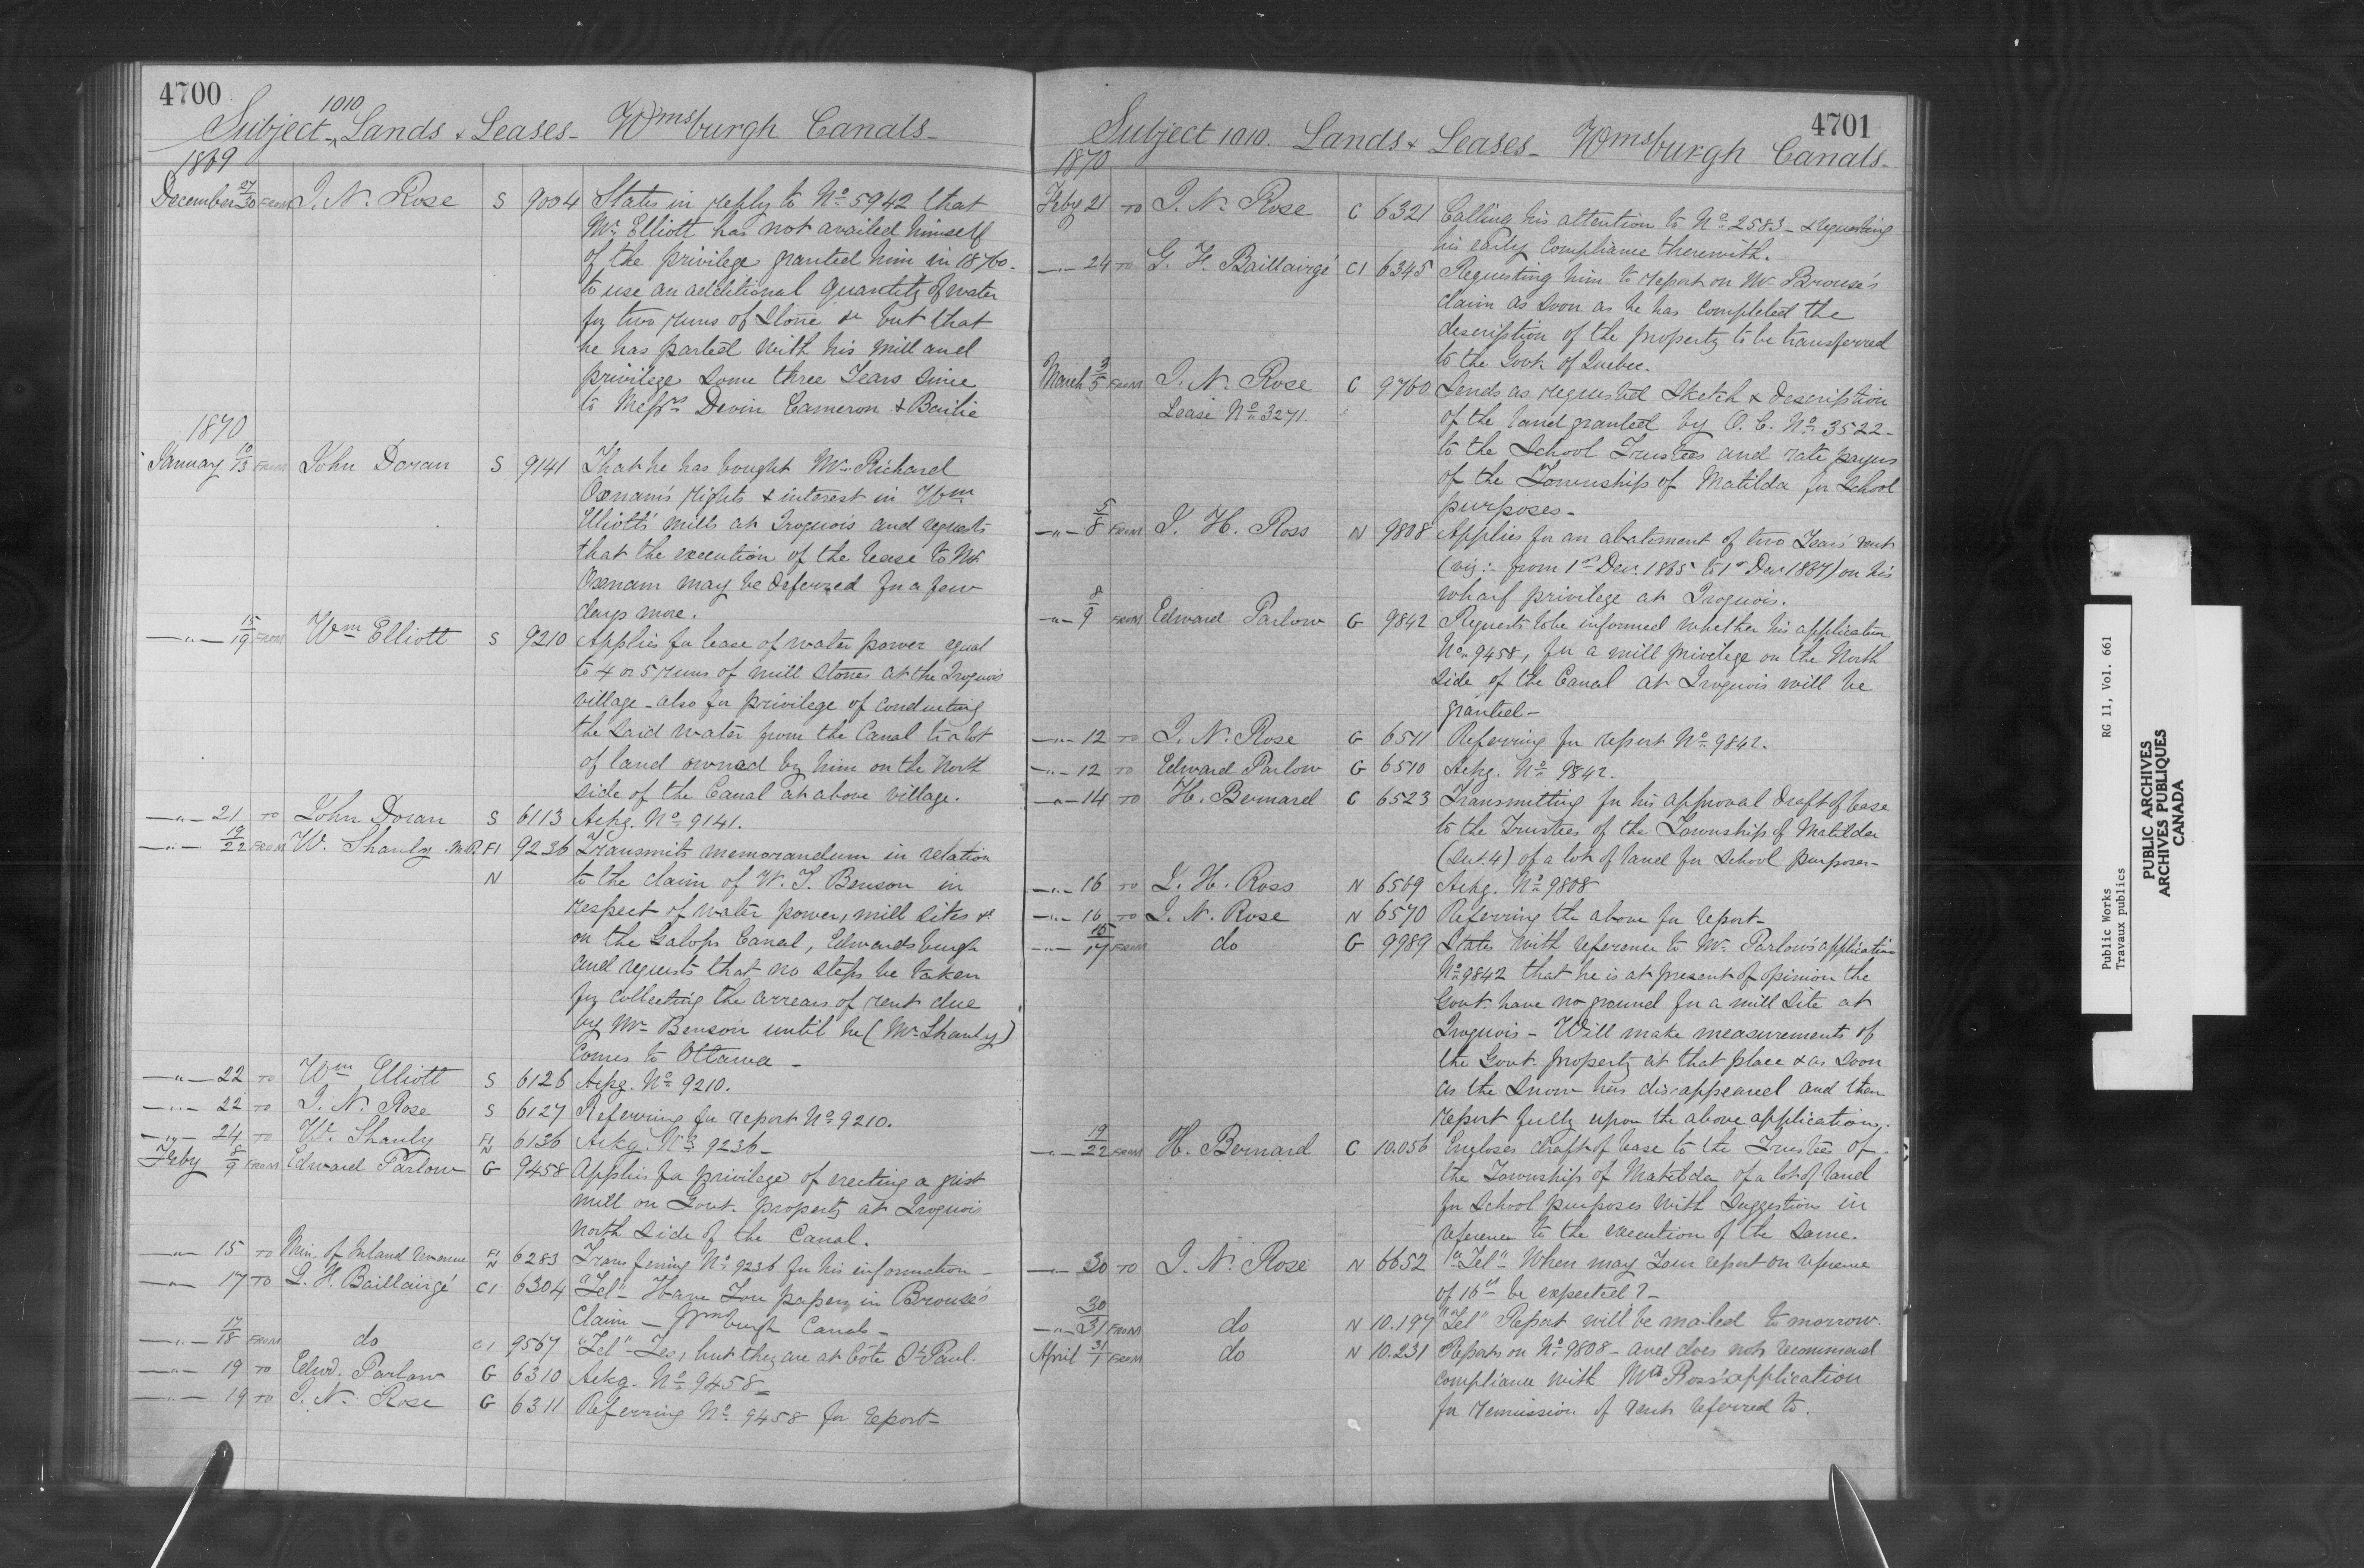 4700
Subject 1010 Lands & Leases - Wmsburgh Canals -
1869
December 27/30 FROM I. N. Rose S 9004 States in reply to No. 5942 that
Mr. Elliott has not availed himself
of the privilege granted him in 1860.
to use an additional quantity of water
for two runs of Stone &c but that
he has parted with his mill and
privilege some three Years since
to Messrs. Devin Cameron & Bailie
1870
January 10/13 FROM John Doran S 9141 That he has bought Mr. Richard
Oxnam's rights & interest in Wm
Elliott's mills at Iroquois and requests
that the execution of the lease to Mr.
Oxnam may be deferred for a few
days more.
—"— 15/19 FROM Wm Elliott S 9210 Applies for lease of water power equal
to 4 or 5 runs of mill stones at the Iroquois
village - also for privilege of conducting
the said water from the Canal to a lot
of land owned by him on the North
side of the Canal at above village.
—"— 21 TO John Doran S 6113 Ackg. No. 9141.
—"— 19/22 FROM W. Shanly M.P. F1 9236 Transmits memorandum in relation
N to the claim of W. T. Benson in
respect of water power, mill sites &c
on the Galops Canal, Edwardsburgh
and requests that no steps be taken
for collecting the arrears of rent due
by Mr. Benson until he (Mr. Shanly)
comes to Ottawa -
—"— 22 TO Wm Elliott S 6126 Ackg. No. 9210.
—"— 22 TO I. N. Rose S 6127 Referring for report No. 9210.
—"— 24 TO W. Shanly F1 N 6136 Ackg. No. 9236 -
Feby 8/9 FROM Edward Parlow G 9458 Applies for privilege of erecting a grist
mill on Govt. property at Iroquois
north side of the Canal.
—"— 15 TO Min. of Inland Revenue F1 N 6283 Transferring No. 9236 for his information -
—"— 17 TO G. F. Baillairgé C1 6304 "Tel" - Have You papers in Brouse's
Claim - Wmsburgh Canals -
—"— 17/18 FROM do C1 9567 "Tel" - Yes, but they are at Côte St Paul.
—"— 19 TO Edwd. Parlow G 6310 Ackg. No. 9458 -
—"— 19 TO I. N. Rose G 6311 Referring No. 9458 for report -
4701
Subject 1010. Lands & Leases - Wmsburgh Canals -
1870
Feby 21 TO I. N. Rose C 6321 Calling his attention to No. 2583 - & requesting
his early compliance therewith.
—"— 24 TO G. F. Baillairgé C1 6345 Requesting him to report on Mr. Brouse's
claim as soon as he has completed the
description of the property to be transferred
to the Govt. of Quebec.
March 3/5 FROM I. N. Rose C 9760 Sends as requested sketch & description
Lease No. 3271. of the land granted by O. C. No. 3522 -
to the School Trustees and rate payers
of the Township of Matilda for School
purposes -
—"— 5/8 FROM J. H. Ross N 9808 Applies for an abatement of two Years' rent
(viz: - from 1st Decr. 1865 to 1st Decr 1867) on his
wharf privilege at Iroquois.
—"— 8/9 FROM Edward Parlow G 9842 Requests to be informed whether his application
No. 9458, for a mill privilege on the North
side of the Canal at Iroquois will be
granted -
—"— 12 TO I. N. Rose G 6511 Referring for report No. 9842.
—"— 12 TO Edward Parlow G 6510 Ackg. No. 9842.
—"— 14 TO H. Bernard C 6523 Transmitting for his approval draft of lease
to the Trustees of the Township of Matilda
(Sec. 4) of a lot of land for School purposes -
—"— 16 TO J. H. Ross N 6569 Ackg. No. 9808
—"— 16 TO I. N. Rose N 6570 Referring the above for report -
—"— 15/17 FROM do G 9989 States with reference to Mr. Parlow's application
No. 9842 that he is at present of opinion the
Govt. have no ground for a mill site at
Iroquois - Will make measurements of
the Govt. property at that place & as soon
as the Snow has disappeared and then
report fully upon the above application.
—"— 19/22 FROM H. Bernard C 10.056 Encloses draft of lease to the Trustees of
the Township of Matilda of a lot of land
for School purposes with suggestions in
reference to the execution of the same.
—"— 30 TO I. N. Rose N 6652 "Tel" - When may Your report on reference
of 16th be expected? -
—"— 30/31 FROM do N 10.197 "Tel" Report will be mailed to morrow.
April 31/1 FROM do N 10.231 Reports on No. 9808 - and does not recommend
compliance with Mr. Ross' application
for remission of rent referred to.
Public Works RG 11, Vol. 661
Travaux publics
PUBLIC ARCHIVES
ARCHIVES PUBLIQUES
CANADA